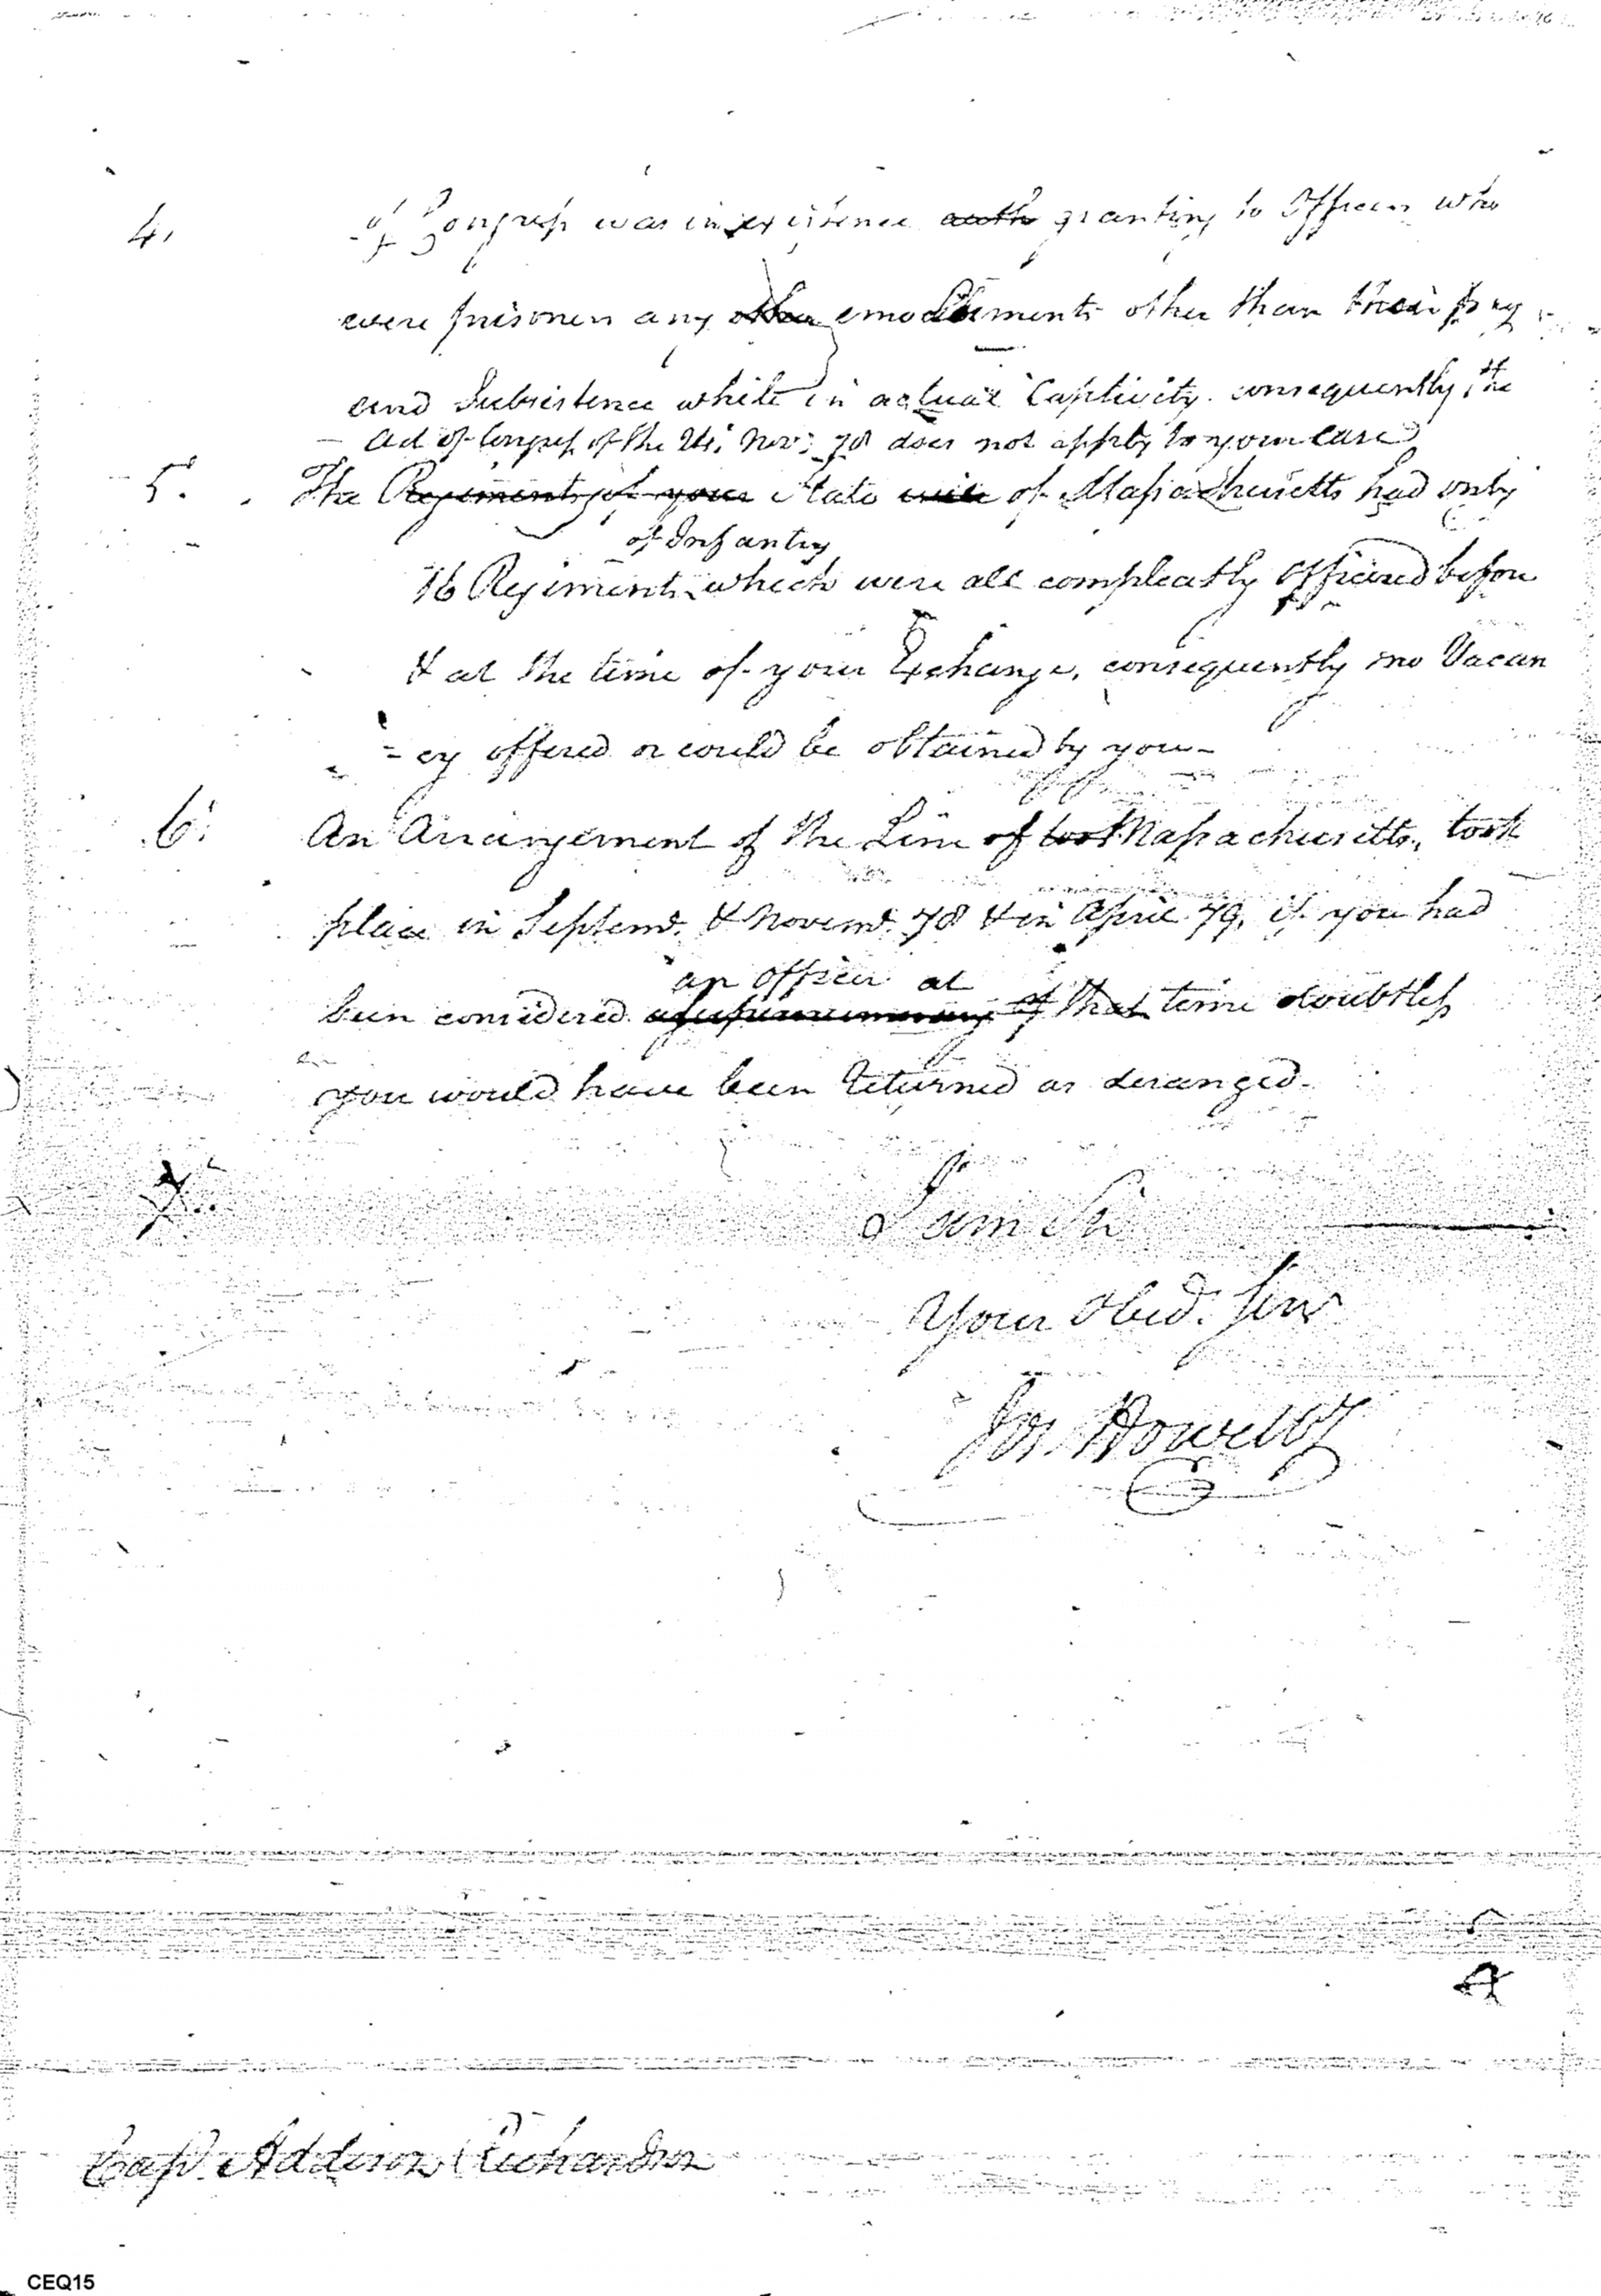 4. of Congress was in existence auth granting to Officers who
were prisoners any other emoluments other than their pay
and Subsistence while in actual Captivity. consequently, the
Act of Congress of the 24. Nov: 78 does not apply to your Case
5. The Regiments of your State of Massachusetts had only
of Infantry
16 Regiments which were all compleatly Officered before
& at the time of your Exchange, consequently no Vacan
=cy offered or could be obtained by you-
6. An Arrangement of the Line of Massachusetts, took
place in Septemr. & Novemr. 78 & in April 79, if you had
an Officer at
been considered a supernumerary of that time doubtless
you would have been returned as deranged-
I am Sir
Your Obed. Serv
Jos. Howell Jr
Capt. Addison Richardson
CEQ15